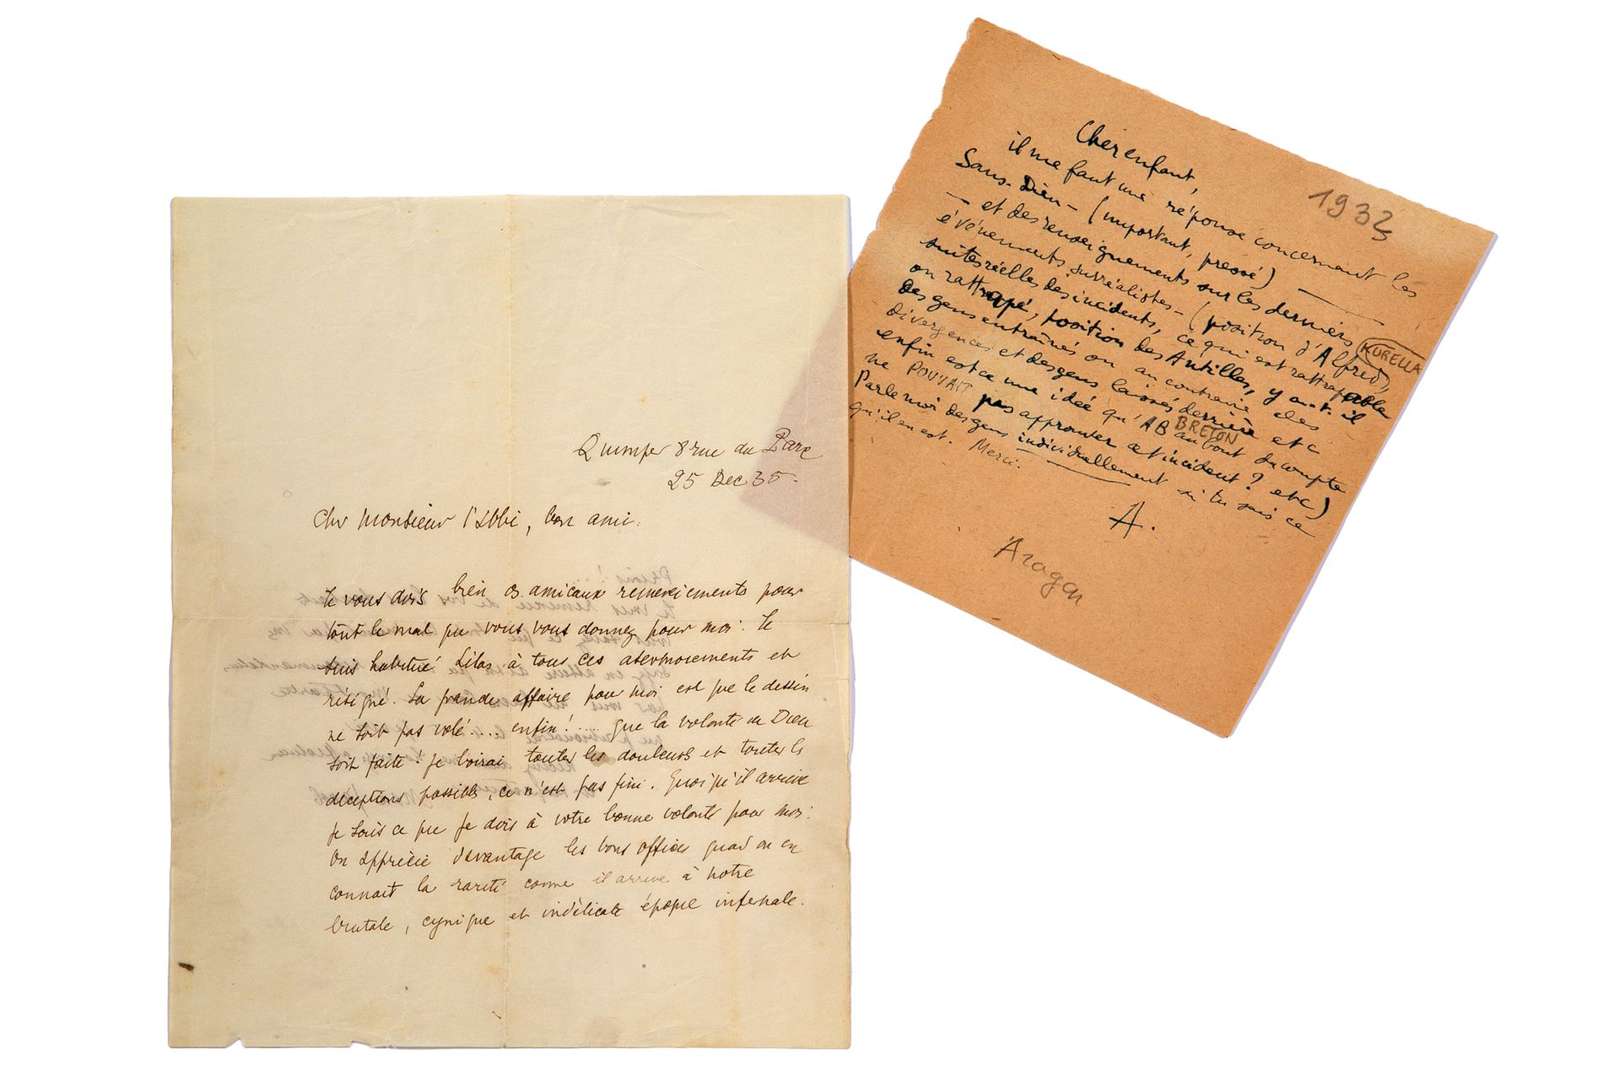 Quimper 8 rue du Parc
25 Dec 35.
Cher Monsieur l'Abbé, bon ami.
Je vous dois bien amicaux remerciements pour
tout le mal que vous vous donnez pour moi. Je
suis habitué à tous ces atermoiements et
résigné. La grande affaire pour moi est que le dessin
ne soit pas volé.... enfin!... que la volonté de Dieu
soit faite! Je boirai toutes les douleurs et toutes les
déceptions possibles, ce n'est pas fini. Quoiqu'il arrive
je sais ce que je dois à votre bonne volonté pour moi.
On apprécie davantage les bons offices quand on en
connait la rareté comme il arrive à notre
brutale, cynique et indélicate épopée infernale.
1932
Cher enfant,
il me faut une réponse concernant les
Sans-Dieu - (important, pressé) —
— et des renseignements sur les derniers
événements surréalistes - (position d'Alfred, KURELLA
suites réelles des incidents, ce qui est rattrapable
ou rattrapé, position des Antilles, y a-t-il
des gens entraînés ou au contraire des
divergences et des gens laissés derrière etc
enfin est-ce une idée qu'AB BRETON au bout du compte
ne POUVAIT pas approuver cet incident? etc)
Parle moi des gens individuellement si tu sais ce
qu'il en est. Merci.
A.
Aragon